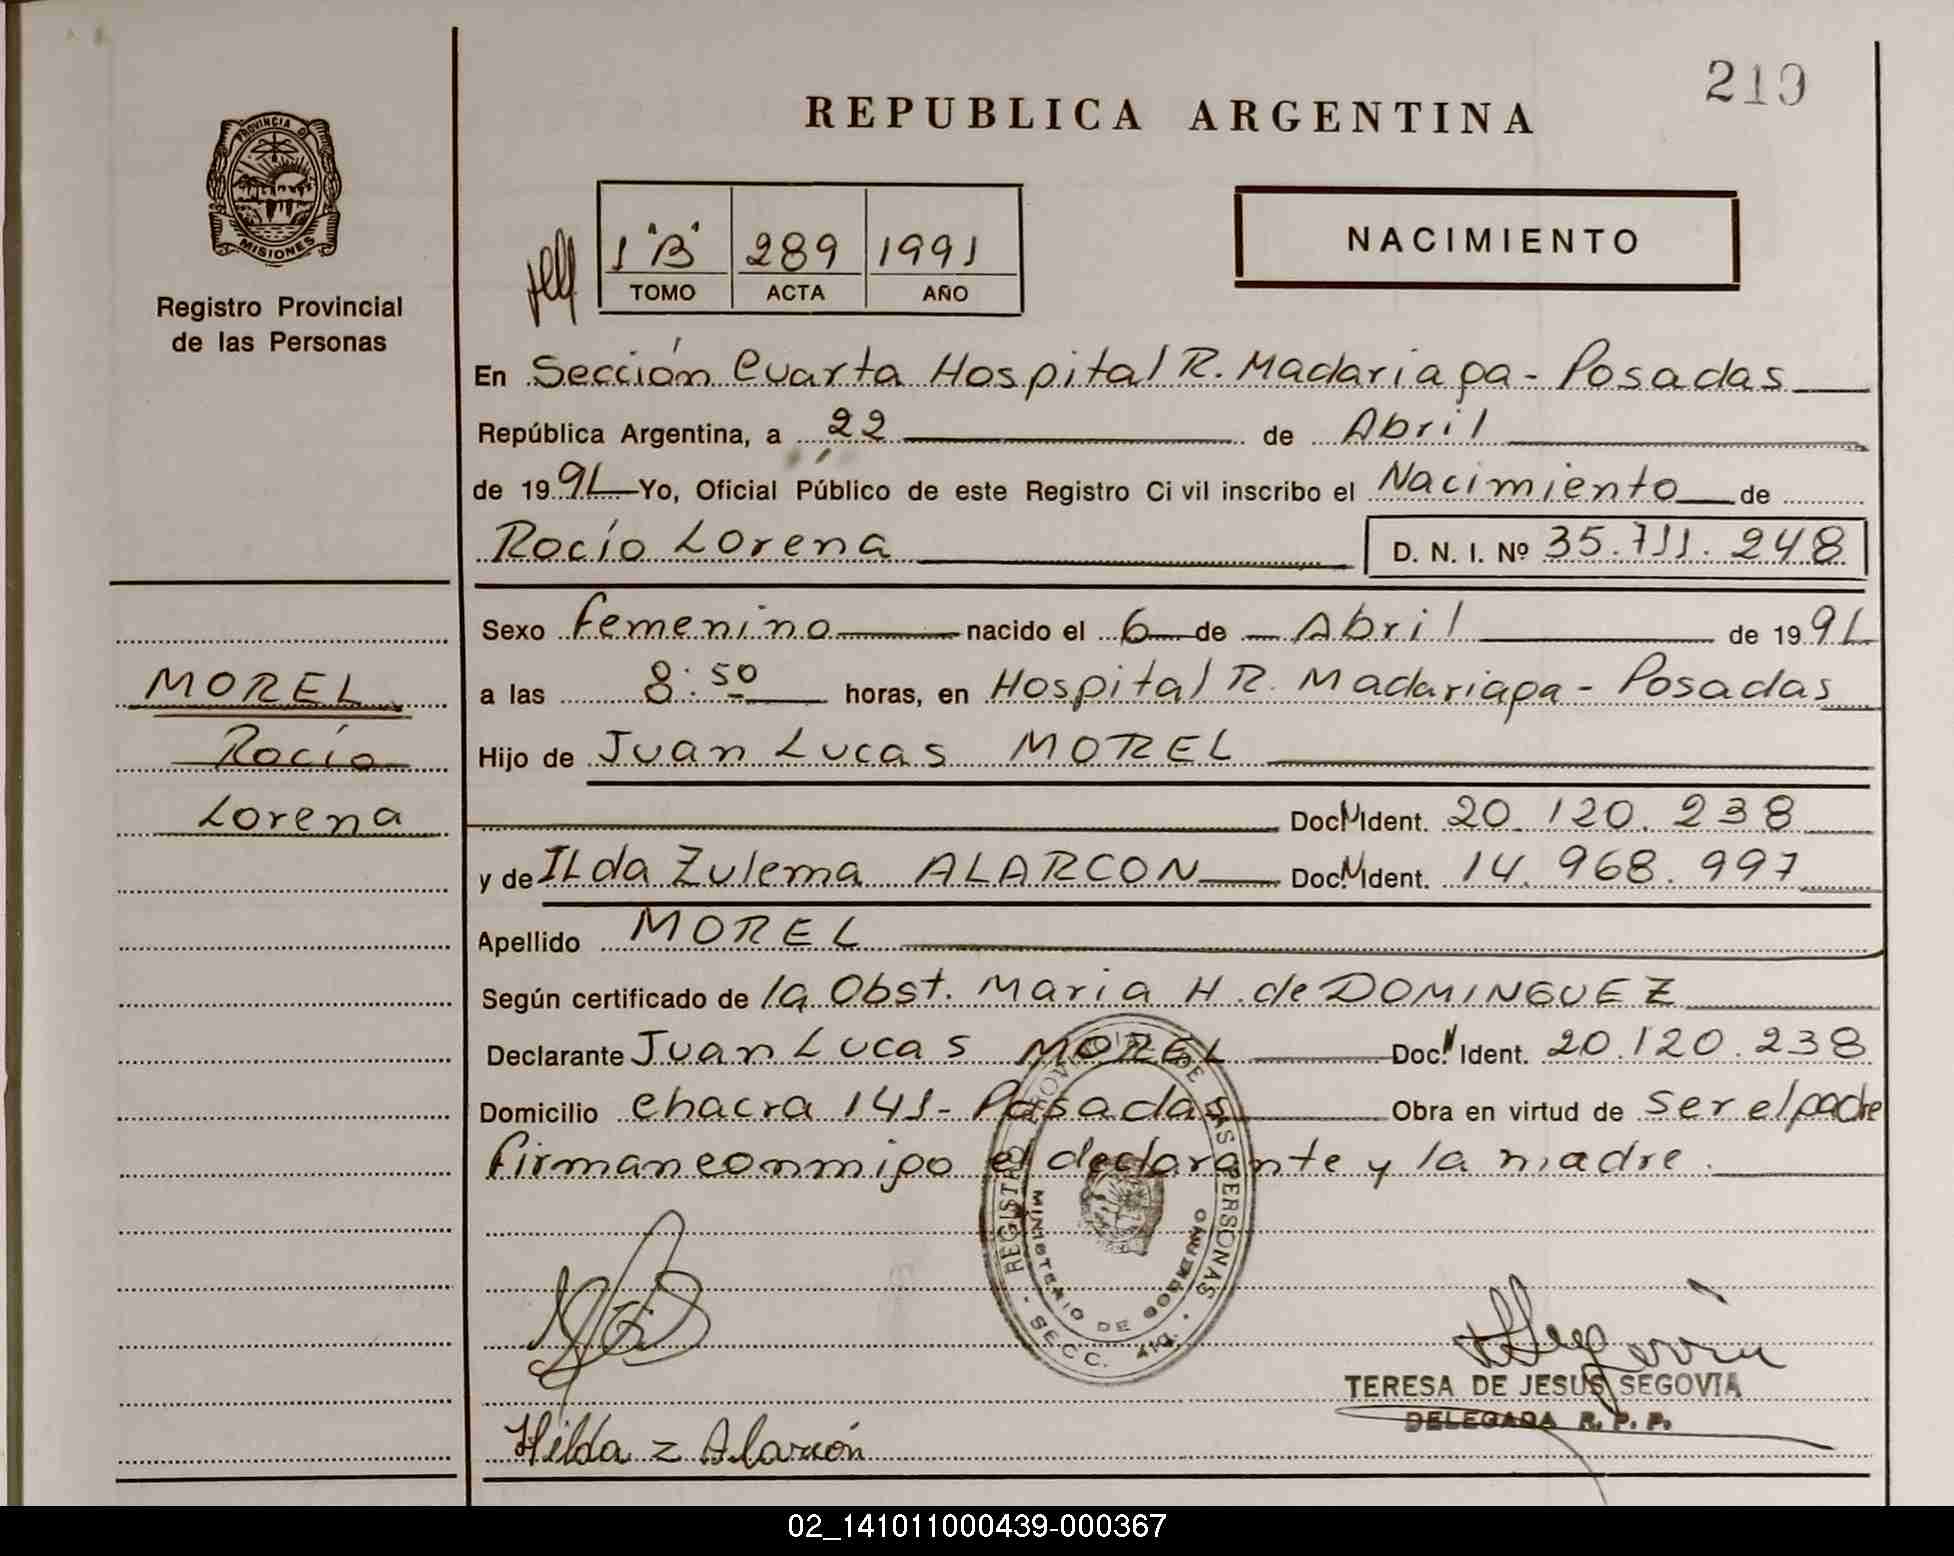 219
REPUBLICA ARGENTINA
PROVINCIA DE
MISIONES
Registro Provincial
de las Personas
1 "B" 289 1991
TOMO ACTA AÑO
NACIMIENTO
En Sección Cuarta Hospital R. Madariaga - Posadas
República Argentina, a 22 de Abril
de 1991 Yo, Oficial Público de este Registro Civil inscribo el Nacimiento de
Rocío Lorena D. N. I. Nº 35.711.248
Sexo femenino nacido el 6 de Abril de 1991
MOREL
a las 8:50 horas, en Hospital R. Madariaga - Posadas
Rocío
Hijo de Juan Lucas MOREL
Lorena
Doc. N Ident. 20.120.238
y de ILda Zulema ALARCON Doc. N Ident. 14.968.997
Apellido MOREL
Según certificado de la Obst. Maria H. de DOMINGUEZ
Declarante Juan Lucas MOREL Doc. N Ident. 20.120.238
Domicilio chacra 141 - Posadas Obra en virtud de ser el padre
firman conmigo el declarante y la madre.
REGISTRO PROVINCIAL DE LAS PERSONAS
MINISTERIO DE GOBIERNO
- SECC. 4ta. -
Segovia
TERESA DE JESUS SEGOVIA
DELEGADA R. P. P.
Hilda Z Alarcón
02_141011000439-000367